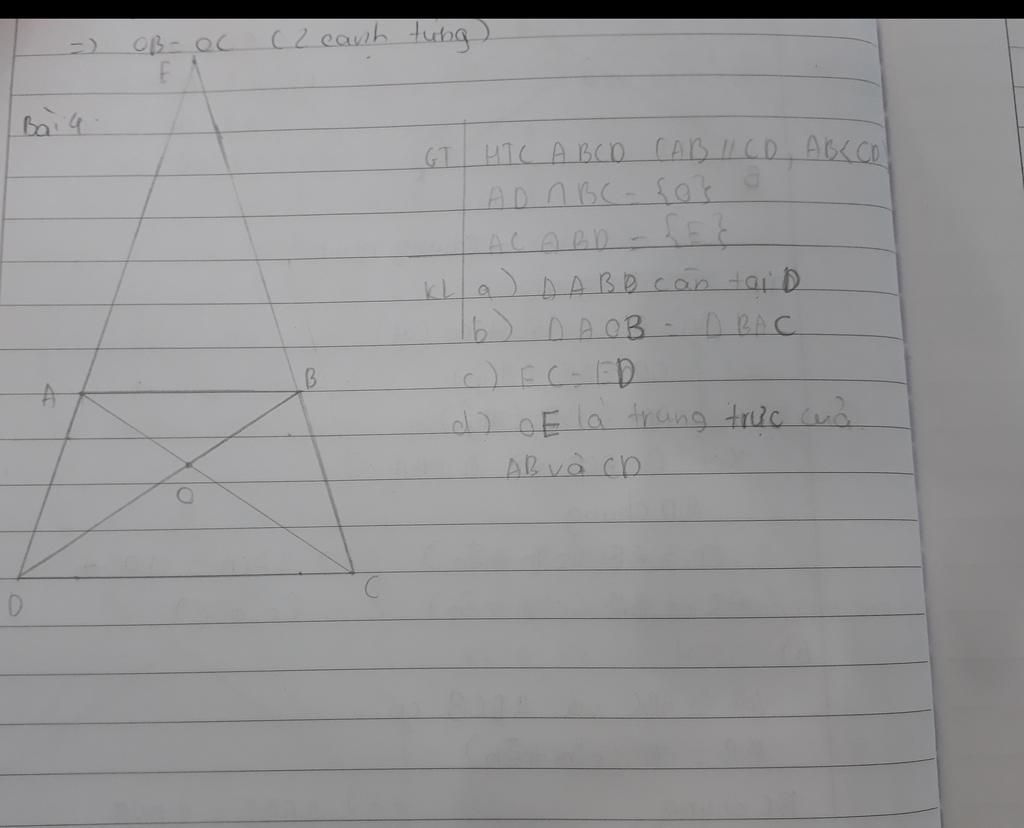 =) OB = OC (2 cạnh tứng)
E
Bài 4
GT HTC ABCD (AB // CD, AB < CD
AD ∩ BC = {O}
AC ∩ BD = {E}
KL a) Δ ABD cân tại D
b) Δ AOB = Δ BAC
A B
c) EC = ED
d) OE là trung trực của
AB và CD
O
D C